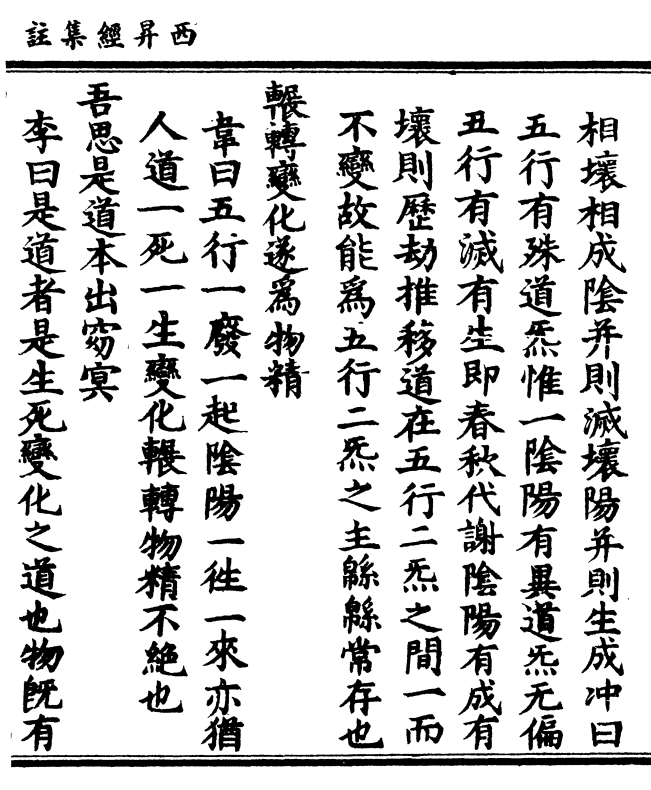 西昇經集註
相壞相成陰并則滅壞陽并則生成冲曰
五行有殊道炁惟一陰陽有異道炁无偏
五行有滅有生即春秋代謝陰陽有成有
壞則歷劫推移道在五行二炁之間一而
不變故能爲五行二炁之主緜緜常存也
輾轉變化遂爲物精
韋曰五行一廢一起陰陽一徃一來亦猶
人道一死一生變化輾轉物精不絶也
吾思是道本出窈冥
李曰是道者是生死變化之道也物旣有